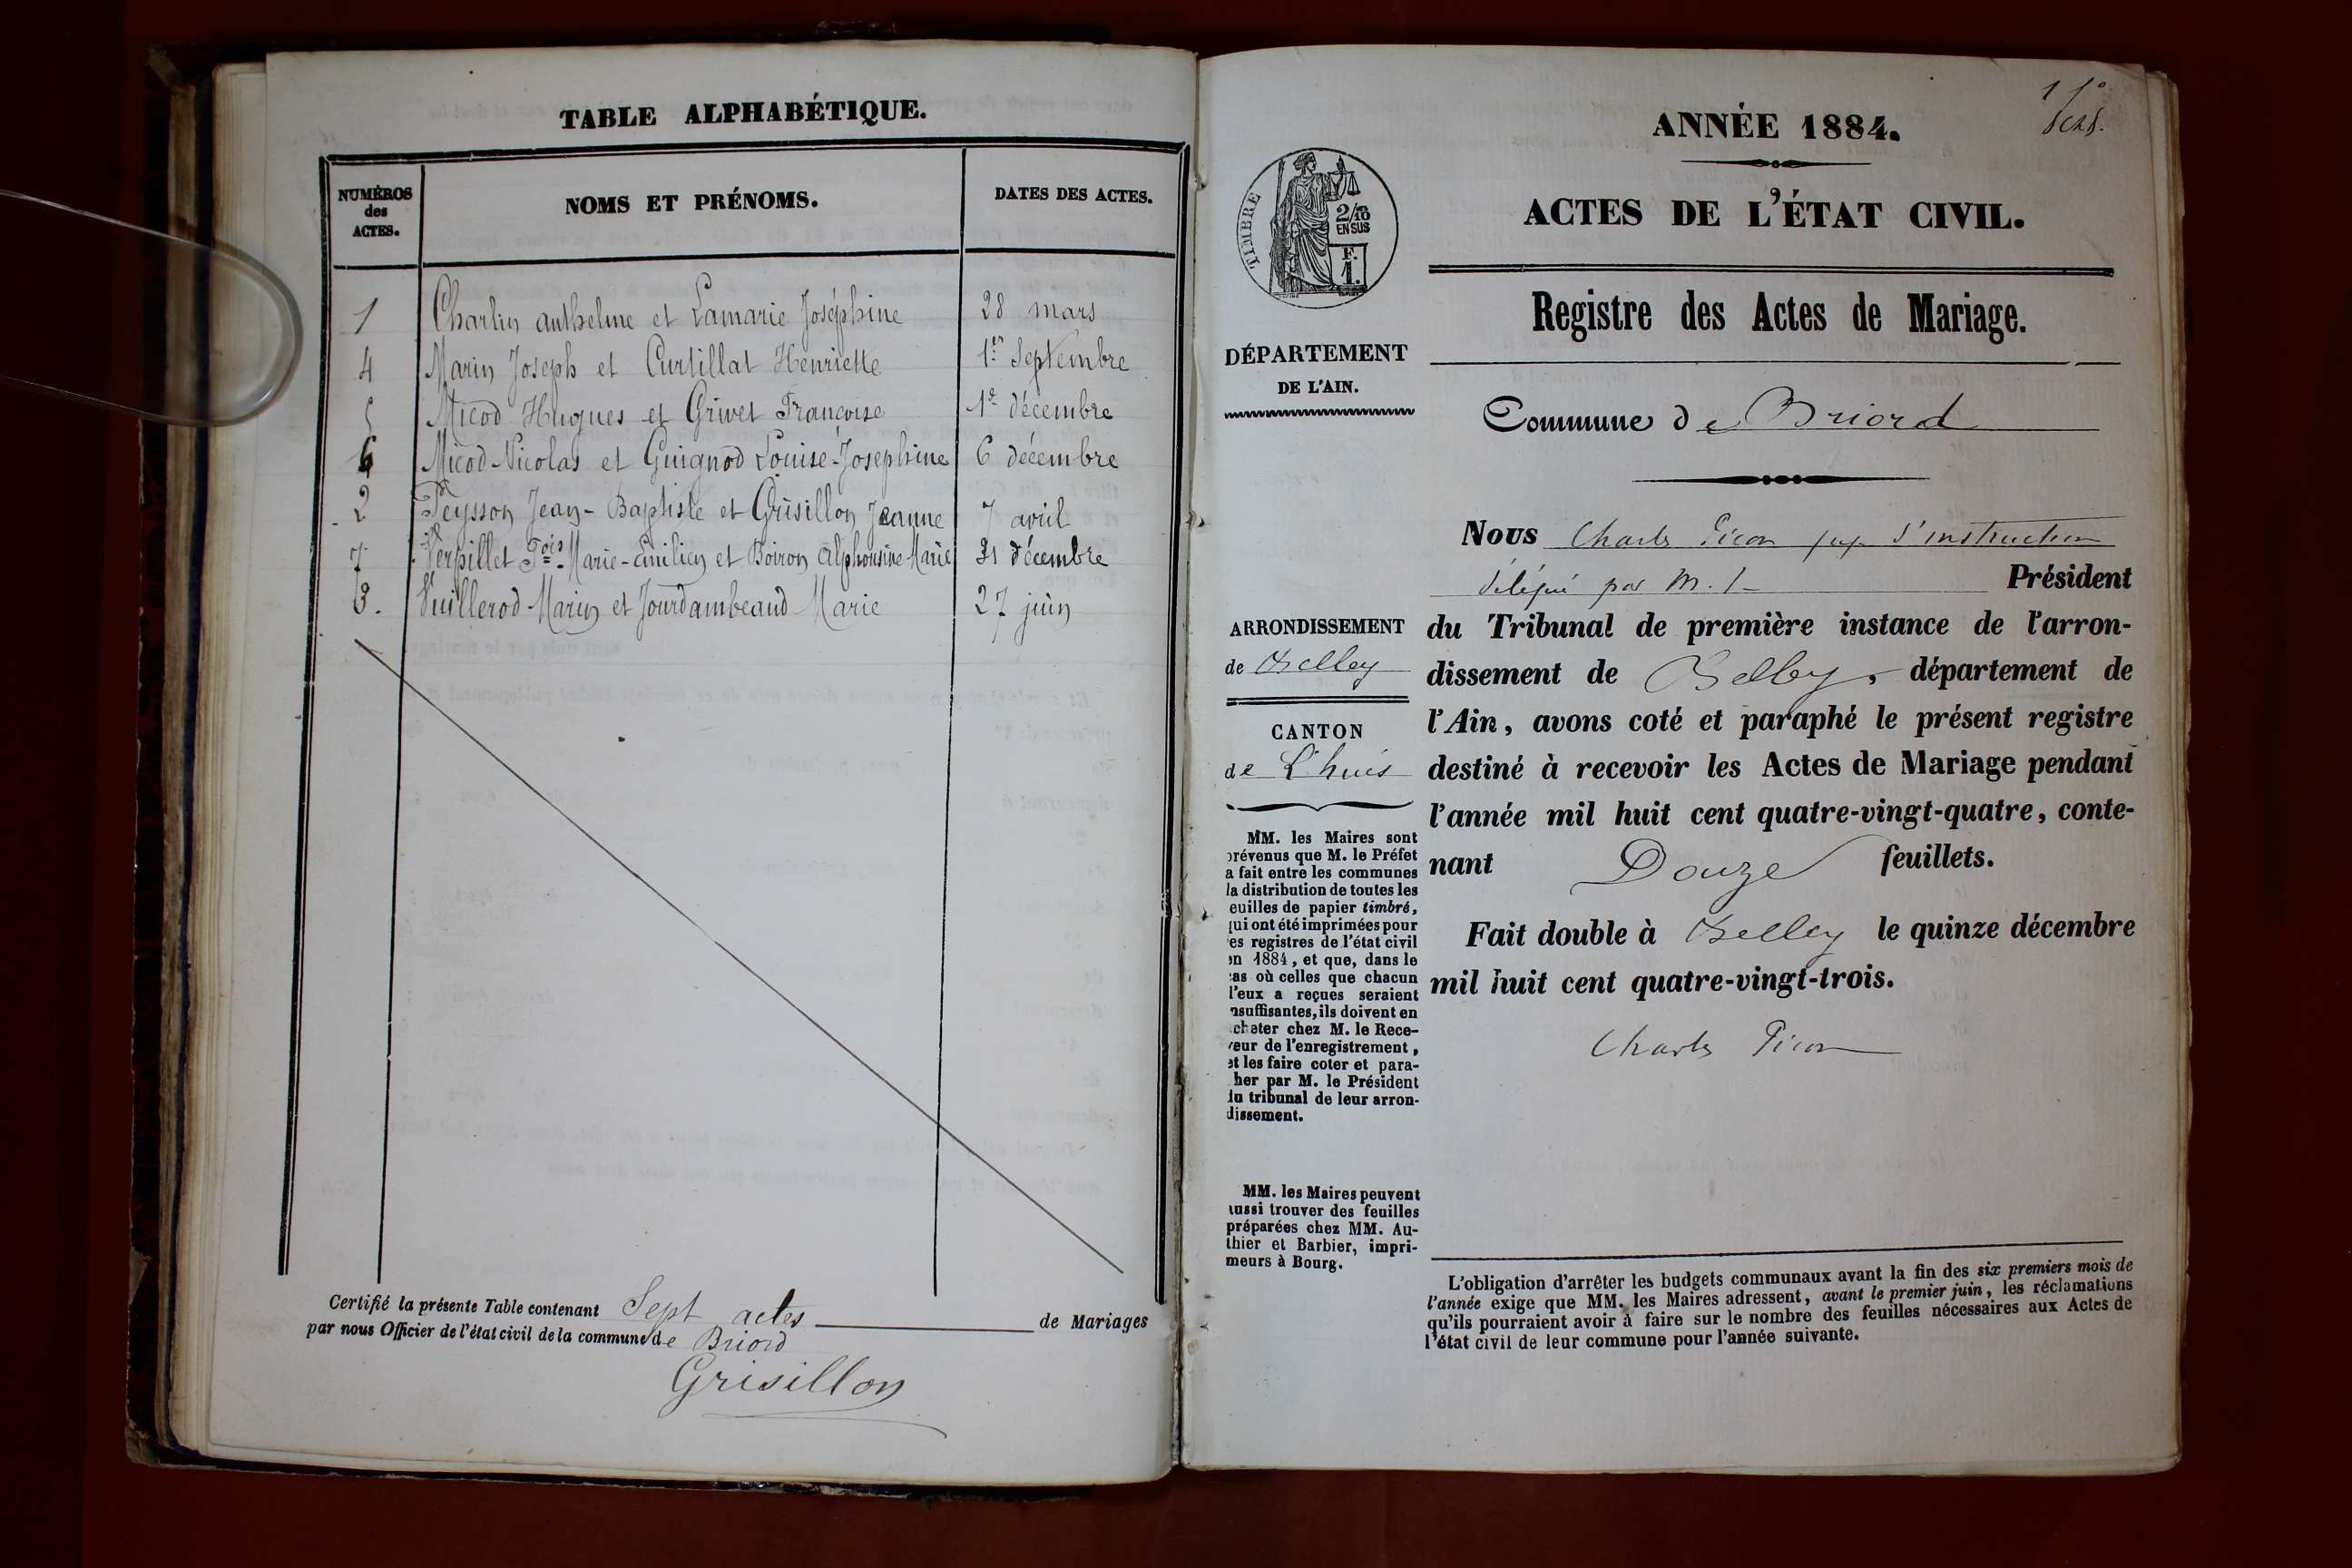 TABLE ALPHABÉTIQUE.
NUMÉROS
des
ACTES.
NOMS ET PRÉNOMS.
DATES DES ACTES.
1 Charlin anthelme et Lamarie Joséphine 28 mars
4 Marin Joseph et Curtillat Henriette 1er Septembre
5 Micod Hugues et Grivet Françoise 1er décembre
6 Micod Nicolas et Guignod Louise-Josephine 6 décembre
2 Peysson Jean-Baptiste et Grisillon Jeanne 7 avril
7 Verpillet Fois Marie-Emilien et Boiron Alphonsine Marie 31 décembre
3. Vuillerod Marin et Jourdambeaud Marie 27 juin
Certifié la présente Table contenant Sept actes de Mariages
par nous Officier de l'état civil de la commune de Briord
Grisillon
ANNÉE 1884.
ACTES DE L'ÉTAT CIVIL.
TIMBRE
2/10
EN SUS
F.
1.
Registre des Actes de Mariage.
DÉPARTEMENT
DE L'AIN.
Commune de Briord
Nous Charles Picon juge d'instruction
délégué par M. le Président
ARRONDISSEMENT
de Belley
du Tribunal de première instance de l'arron-
dissement de Belley, département de
l'Ain, avons coté et paraphé le présent registre
CANTON
de L'huis
destiné à recevoir les Actes de Mariage pendant
l'année mil huit cent quatre-vingt-quatre, conte-
nant Douze feuillets.
Fait double à Belley le quinze décembre
mil huit cent quatre-vingt-trois.
Charles Picon
MM. les Maires sont
prévenus que M. le Préfet
a fait entre les communes
la distribution de toutes les
euilles de papier timbré,
qui ont été imprimées pour
es registres de l'état civil
en 1884, et que, dans le
as où celles que chacun
l'eux a reçues seraient
nsuffisantes, ils doivent en
cheter chez M. le Rece-
veur de l'enregistrement,
et les faire coter et para-
her par M. le Président
du tribunal de leur arron-
dissement.
MM. les Maires peuvent
aussi trouver des feuilles
préparées chez MM. Au-
thier et Barbier, impri-
meurs à Bourg.
L'obligation d'arrêter les budgets communaux avant la fin des six premiers mois de
l'année exige que MM. les Maires adressent, avant le premier juin, les réclamations
qu'ils pourraient avoir à faire sur le nombre des feuilles nécessaires aux Actes de
l'état civil de leur commune pour l'année suivante.